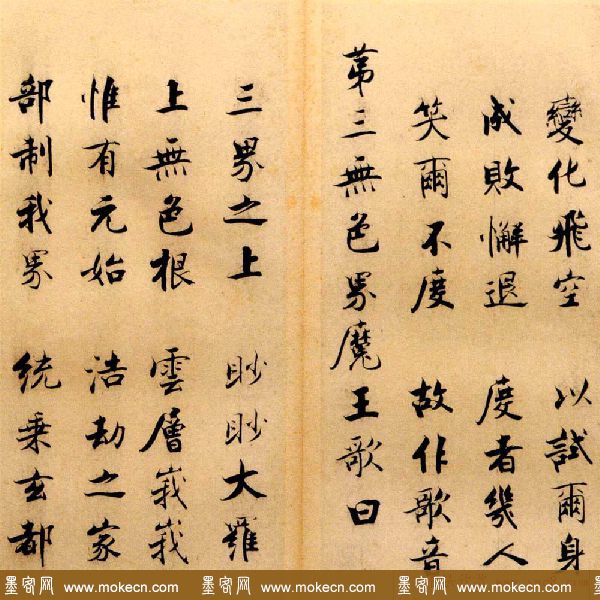 變化飛空 以試爾身
成敗懈退 度者幾人
笑爾不度 故作歌音
第三無色界魔王歌曰
三界之上 眇眇大羅
上無色根 雲層峩峩
惟有元始 浩劫之家
部制我界 統乘玄都
墨客网 www.mokecn.com 墨客网 www.mokecn.com 墨客网 www.mokecn.com